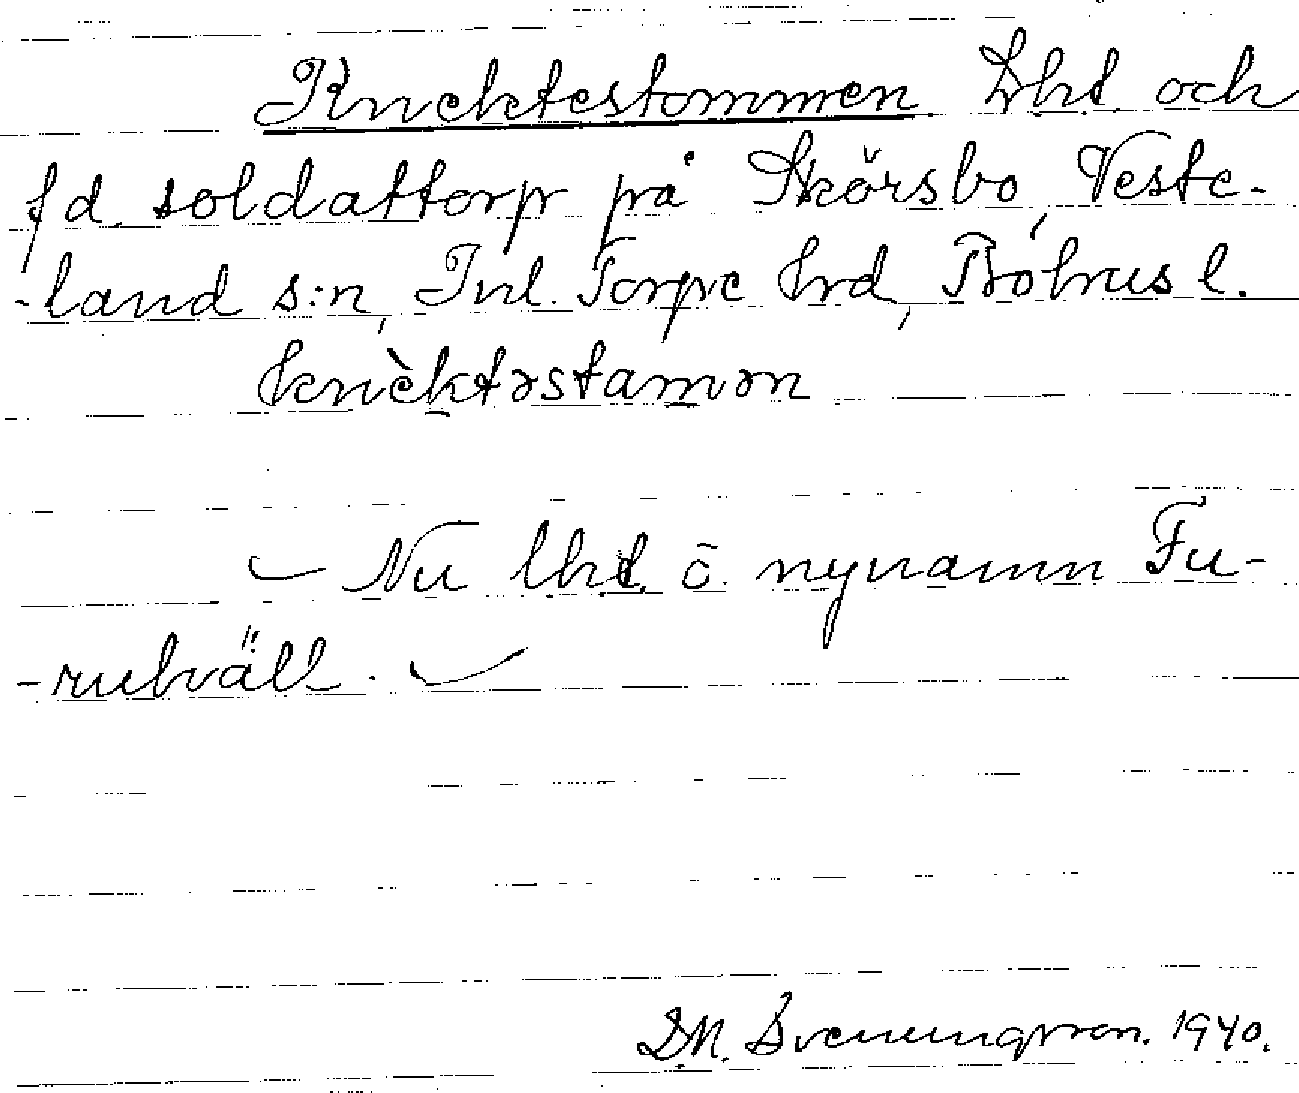 Knektestommen Lht. och
fd. soldattorp på Skörsbo, Veste-
-land s:n, Inl. Torpe hrd, Bohus l.
knὲktəstamən
Nu lht. ō. nynamn Fu-
-rubväll.
D.N. Svenningsson. 1940.